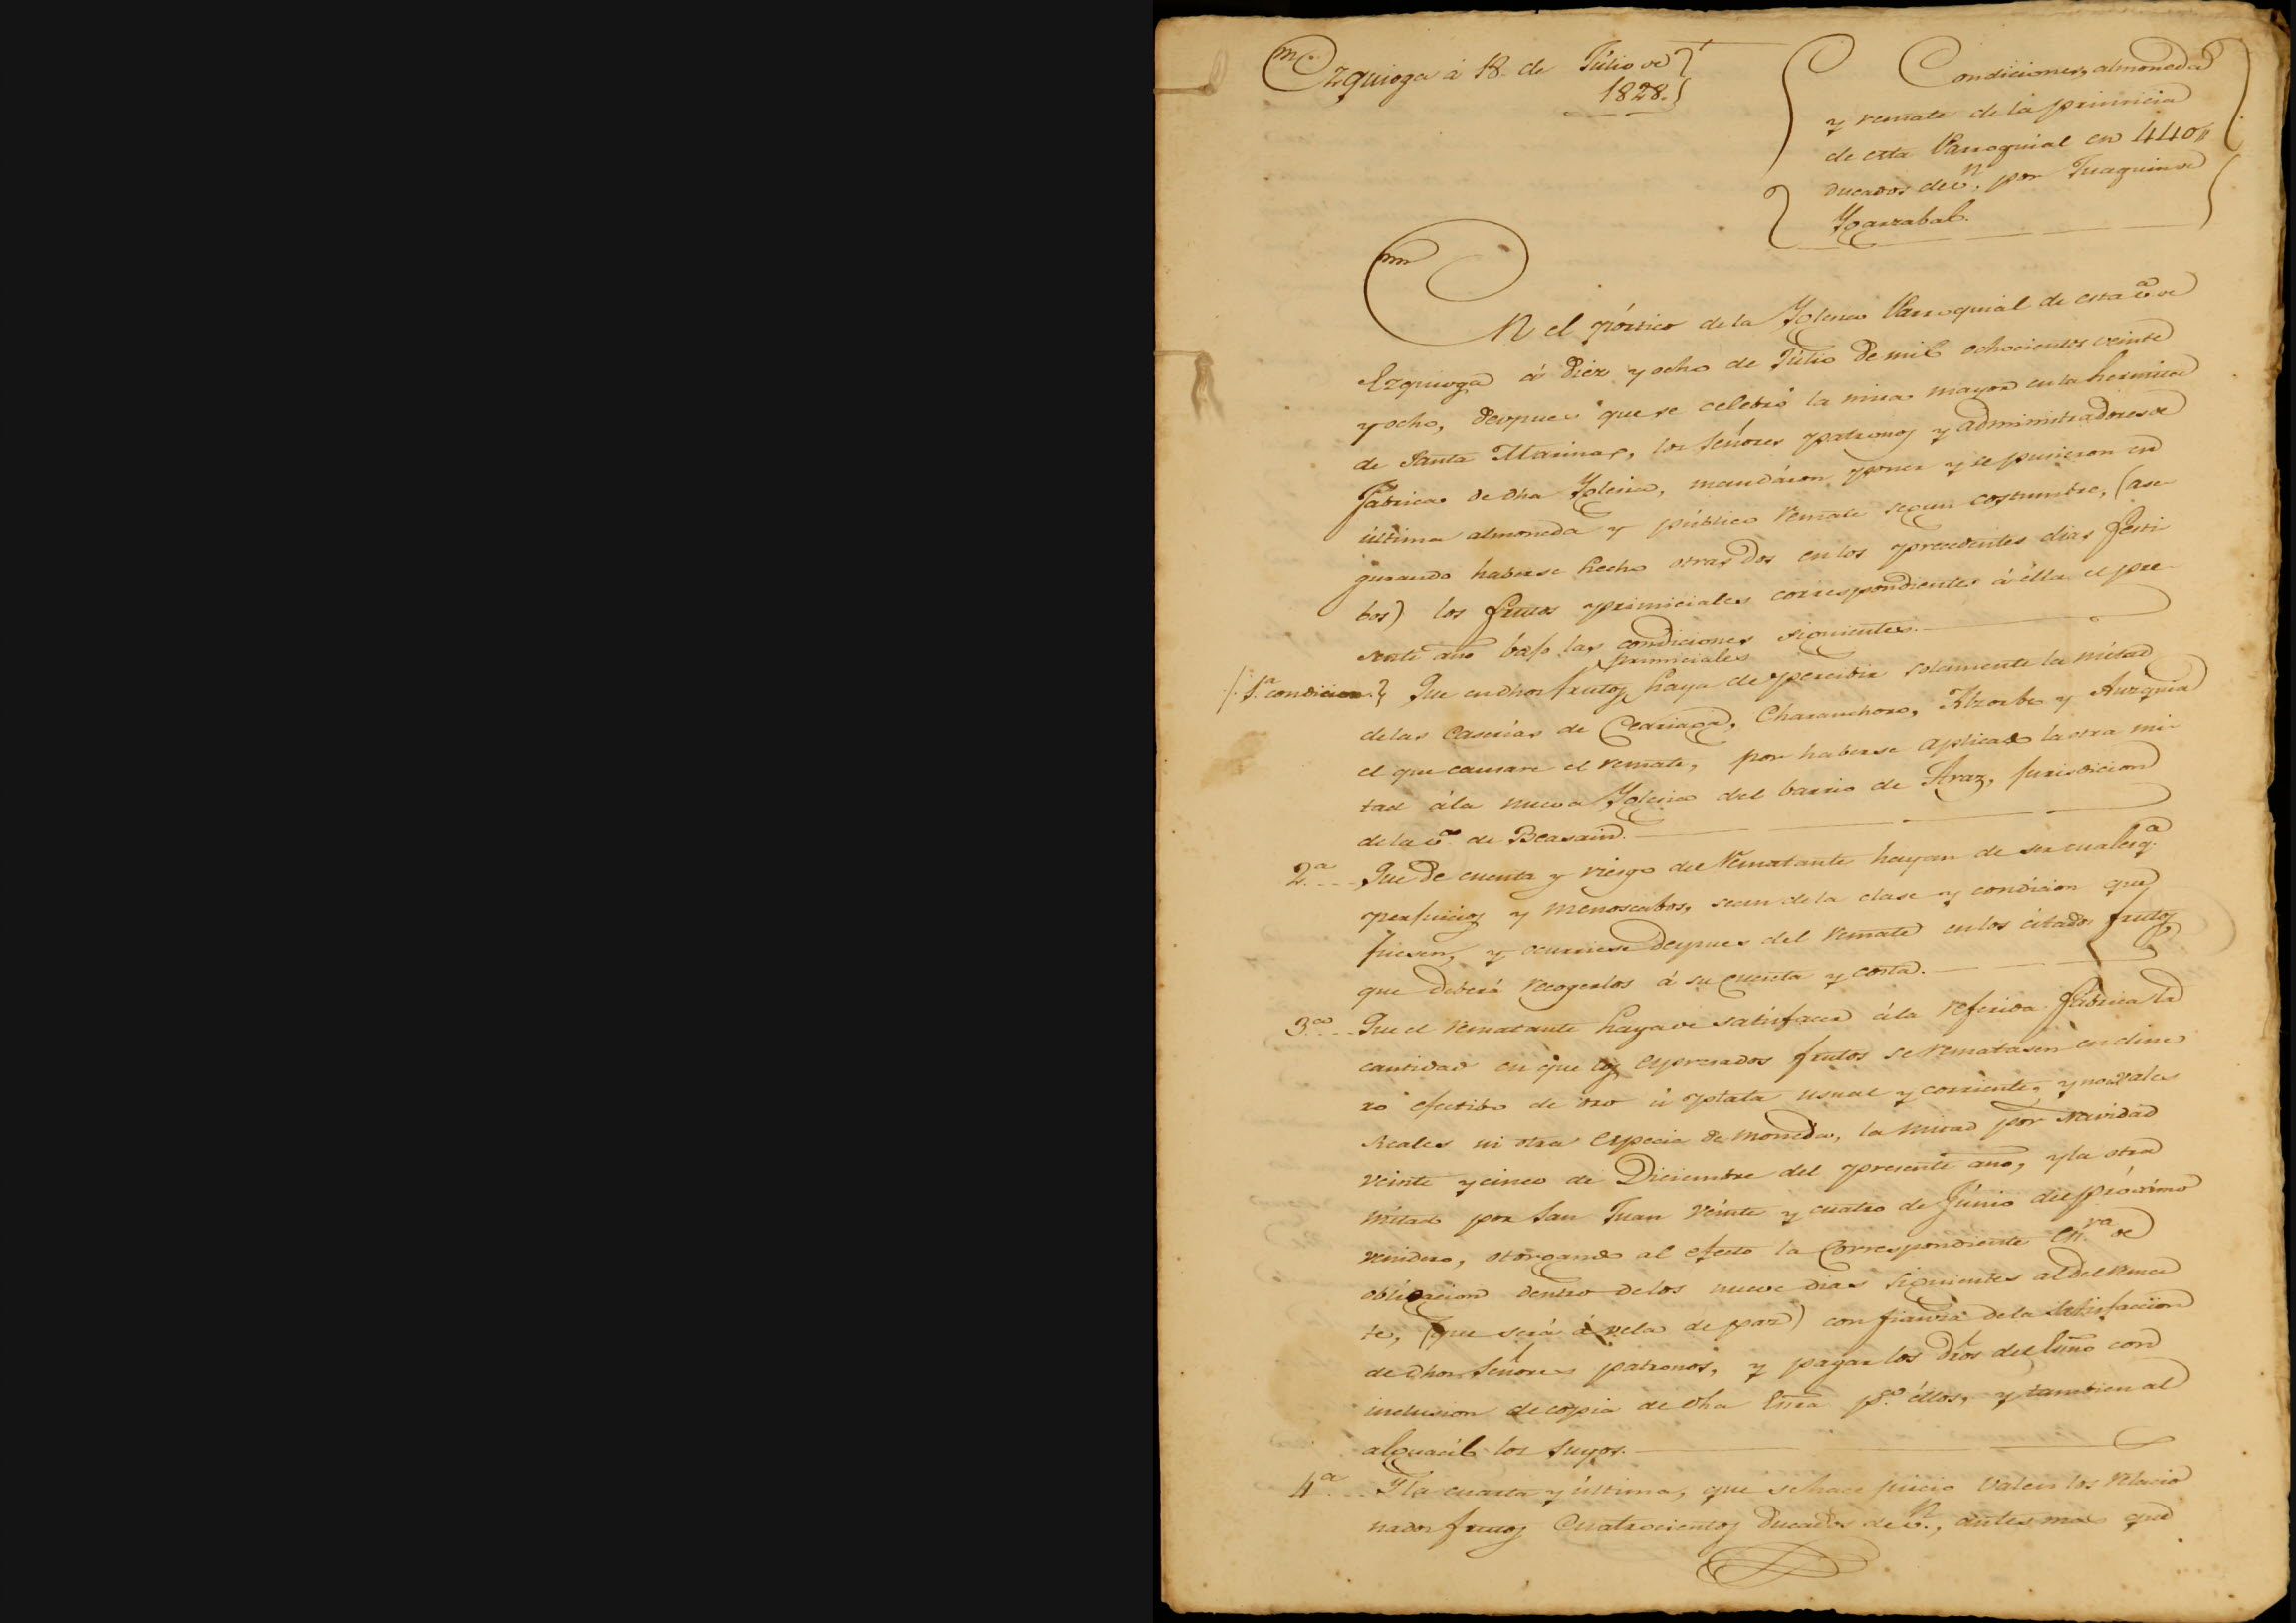 Ezquioga á 18. de Júlio de
1828.
Condiciones, almoneda
y remate de la primicia
de esta Parroquial en 440
ducados de v.n por Juaquin de
Ygarzabal.
En el pórtico de la Yglesia Parroquial de esta v.a de
Ezquioga á diez y ocho de Júlio de mil ochocientos veinte
y ocho, despues que se celebró la misa mayor en la hermita
de Santa Marina, los Señores patronos y administradores de
Fabrica de dha Yglesia, mandáron poner y se pusieron en
última almoneda y público remate segun costumbre, (ase-
gurando haberse hecho otras dos en los precedentes dias festi-
bos) los frutos primiciales correspondientes á élla el pre-
sente año bajo las condiciones siguientes.
1.a condicion. Que en dhos frutos primiciales haya de percibir solamente la mitad
de las Caserias de Charanchoro, y
el que causare el remate, por haberse aplicado la otra mi-
tad á la nueva Yglesia del barrio de Araz, jurisdicion
de la v.a de Beasain.
2.a Que de cuenta y riesgo del Rematante hayan de ser cualesq.a
perjuicios y menoscabos, sean de la clase y condicion que
fuesen, y ocurriese despues del remate en los citados frutos,
que deberá recogerlos á su cuenta y costa.
3.a Que el rematante haya de satisfacer á la referida fábrica la
cantidad en que los expresados frutos se rematasen en dine-
ro efectibo de oro ú plata usual y corriente, y no en vales
Reales ni otra especie de moneda, la mitad por Navidad
veinte y cinco de Diciembre del presente año, y la otra
mitad por San Juan veinte y cuatro de Júnio del próximo
venidero, otorgando al efecto la correspondiente Es.ra de
obligacion dentro de los nueve dias siguientes al del rema-
te, (que será á vela de paz) con fianza de la satisfaccion
de dhos Señores patronos, y pagar los dros del Ssno con
inclusion de copia de dha Essra p.a éllos, y tambien al
alguacil los suyos.
4.a Y la cuarta y última, que se hace juicio valen los relacio-
nados frutos Cuatrocientos Ducados de v.n, antes mas que